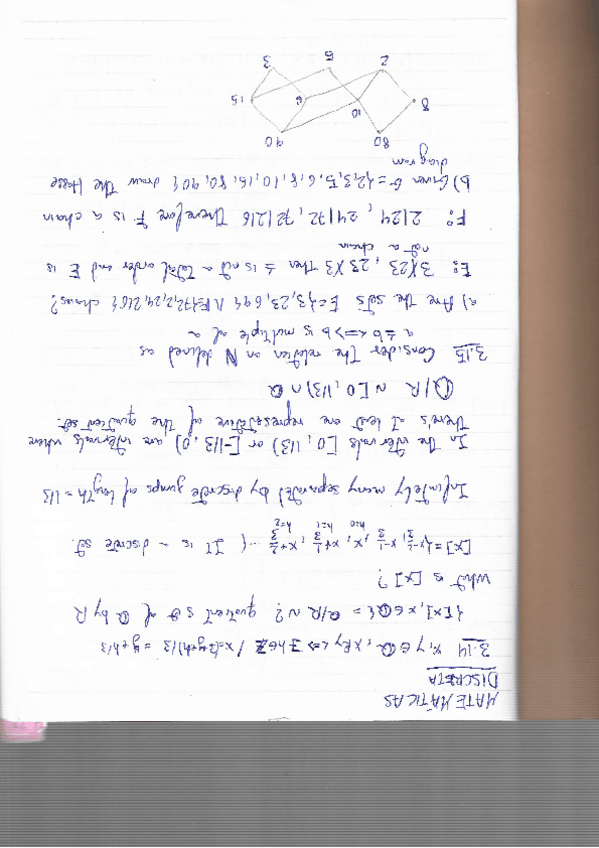 MATEMÁTICAS
DISCRETA
3.14 x, y ∈ Q, xRy <=> ∃h∈Z / x=(3y+h)/3 = y+h/3
{[x], x∈Q} = Q/R ~? quotient set of Q by R
What is [x]?
[x]={x-2/3, x-1/3, x, x+1/3, x+2/3 ...} It is a discrete set.
h=0 h=1 h=2
Infinitely many separated by discrete jumps of length = 1/3
In the intervals [0, 1/3) or [-1/3, 0) are intervals where
there's at least one representative of the quotient set.
Q/R ~ [0, 1/3) ∩ Q
3.15 Consider the relation on N defined as
a ≤ b <=> b is multiple of a
a) Are the sets E={3, 23, 69} ∧ F={72, 2, 24, 216} chains?
E: 3∤23, 23∤3 then ≤ is not a total order and E is
not a chain
F: 2|24, 24|72, 72|216 Therefore F is a chain
b) Given G={2, 3, 5, 6, 8, 10, 15, 80, 90} draw the Hasse
diagram
90 80
15 6 10 8
3 5 2